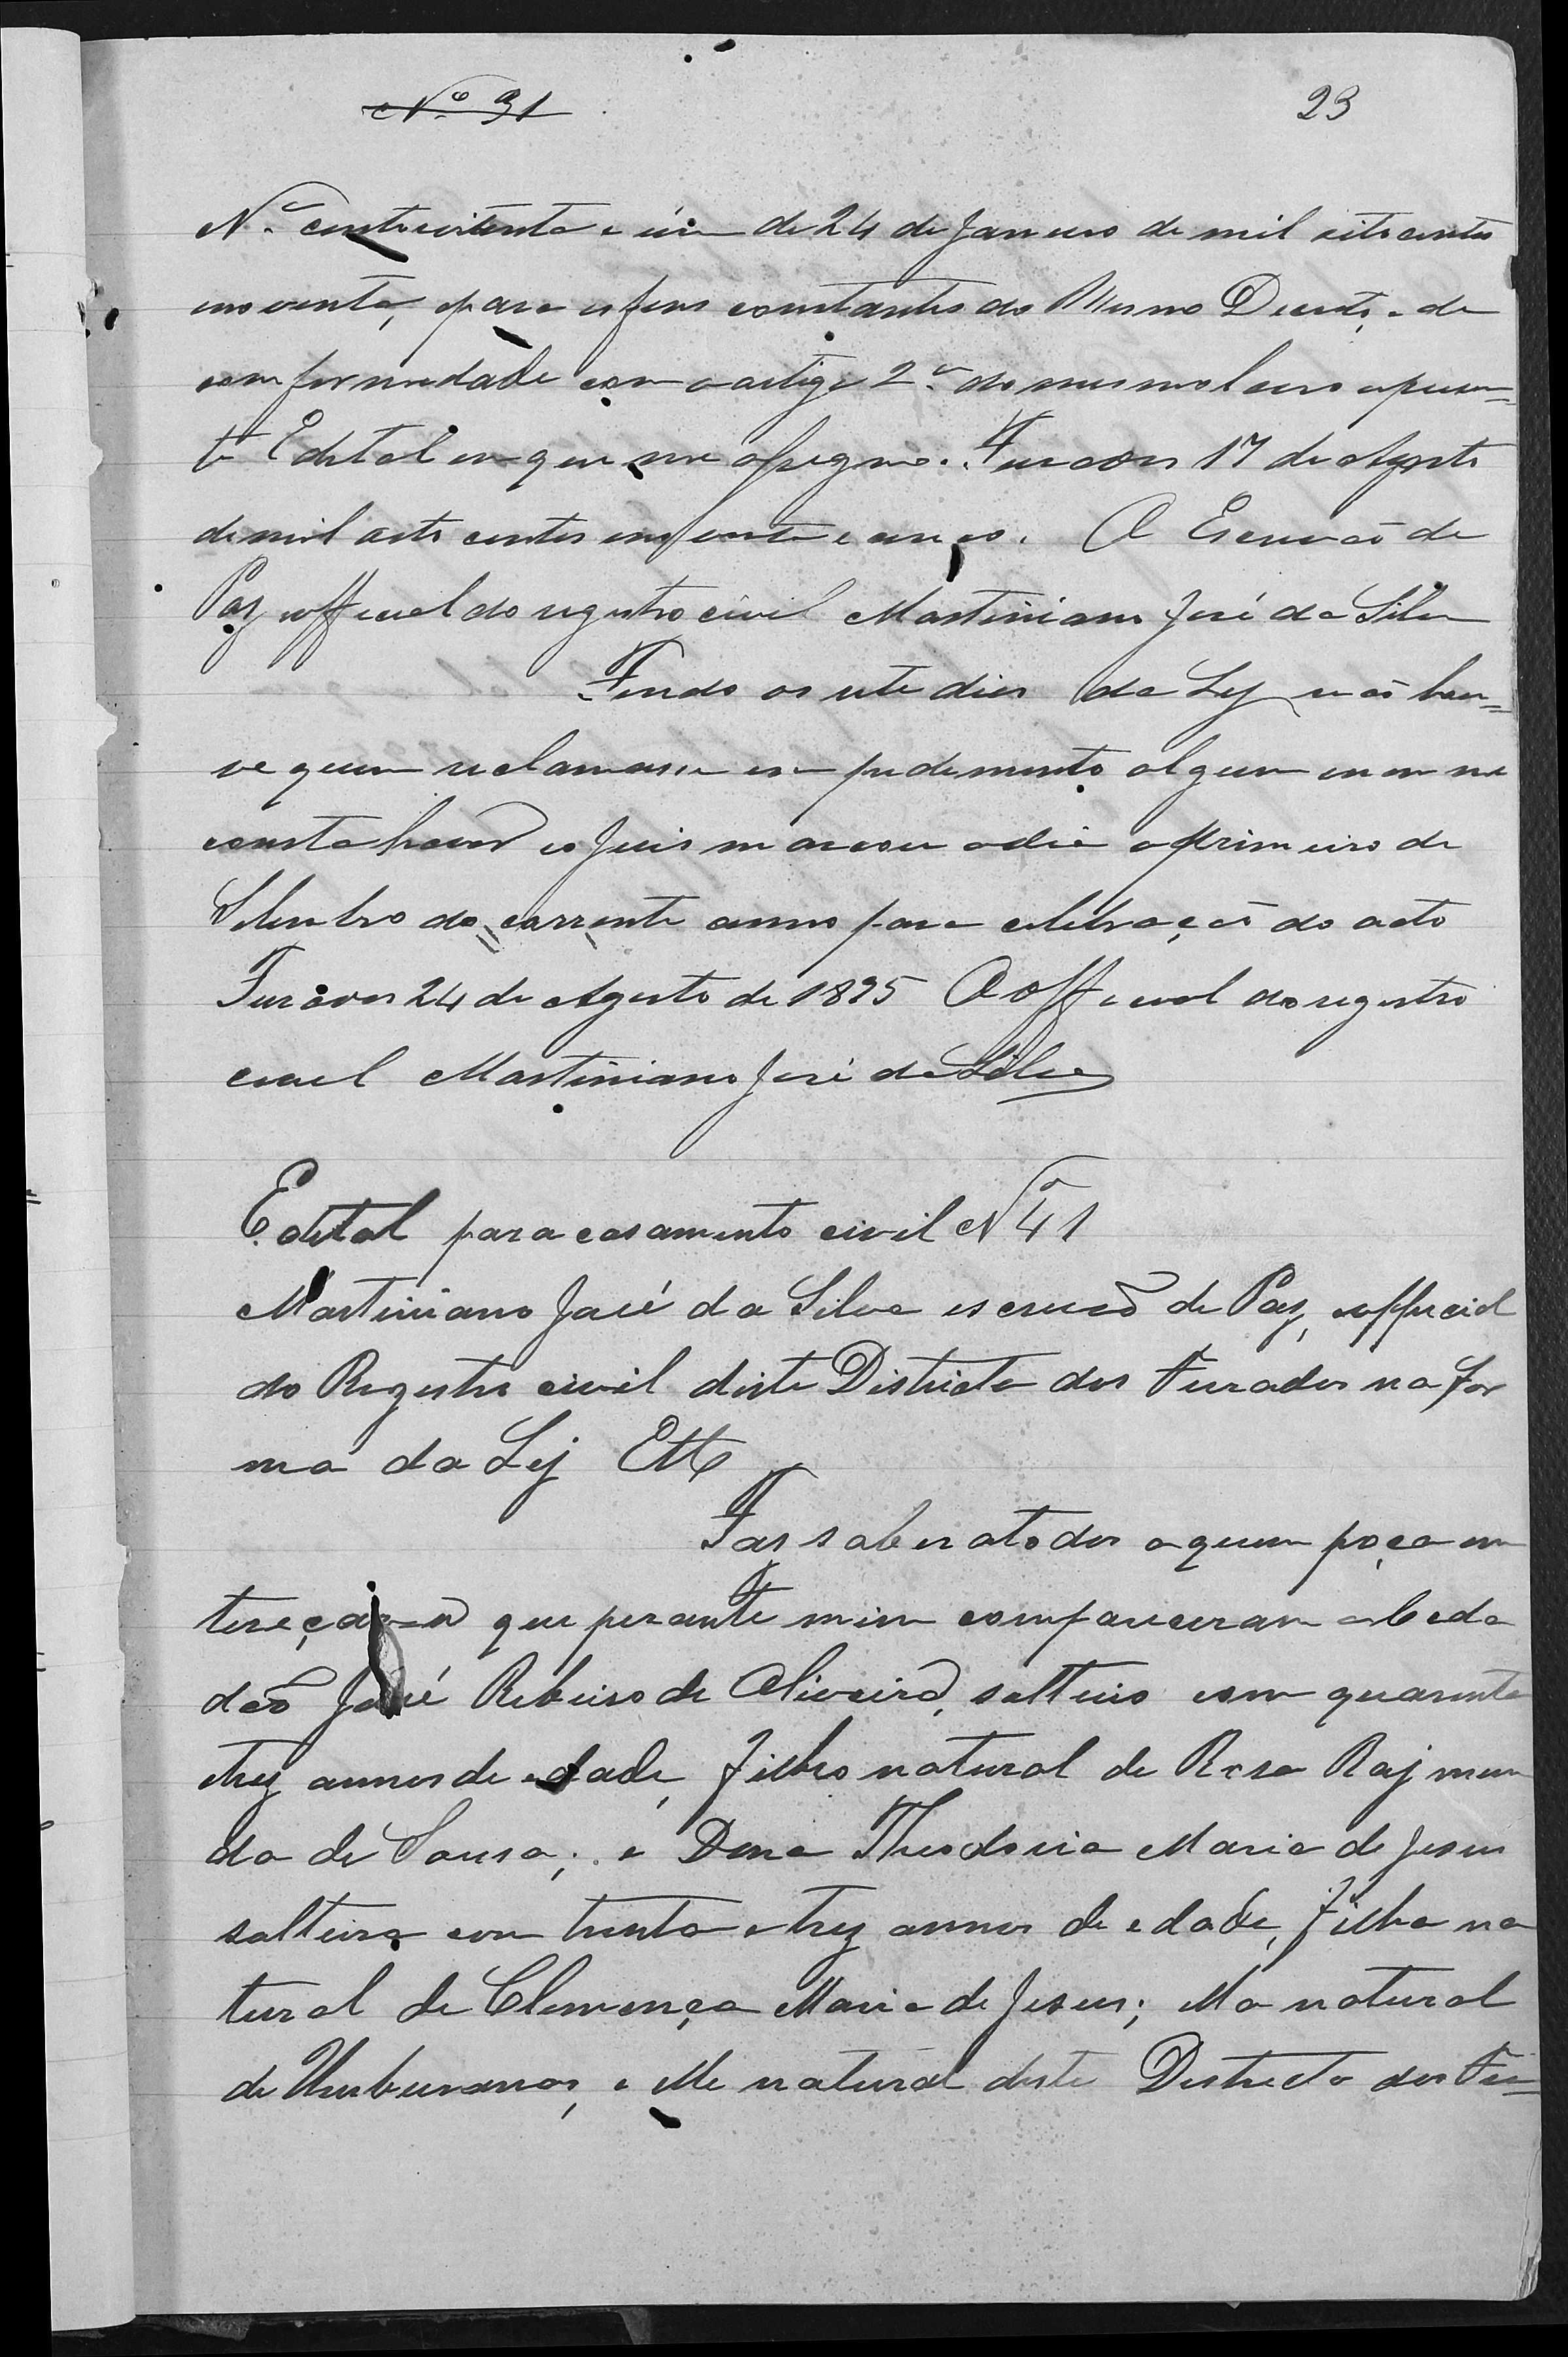 Nº 31
23
Nº cento e oitenta e um de 24 de Janeiro de mil oito centos
e noventa, e para os fins constantes do Mesmo Decreto, e de
conformidade com o artigo 2º do mesmo lavro o presen=
te Edital em que me assigno. Furados 17 de Agosto
de mil oito centos e noventa e cinco. O Escrivaõ de
Paz, official do registro civil Martiniano José da Silva
Findo os sete dias da Ley naõ hou=
ve quem reclamasse empedimento algum nem me
consta haver o Juis marcou o dia o primeiro de
Setembro do corrente anno para celebraçaõ do acto
Furados 24 de Agosto de 1895 O official do registro
civil Martiniano José da Silva
Edital para casamento civil Nº 41
Martiniano José da Silva escrivaõ de Paz, official
do Registro civil deste Districto dos Furados na for
ma da Ley Ettc
Faz saber a todos a quem poça in
tereçar que perante mim compareceram o Ceda
daõ José Ribeiro de Oliveira, solteiro com quarenta
e trez annos de edade, filho natural de Rosa Raymun
da de Sousa; e Dona Theodoria Maria de Jesus
solteira com trinta e trez annos de edade, filha na
tural de Clemença Maria de Jesus; Ella natural
de Umburanas, e elle natural deste Destricto dos Fu=